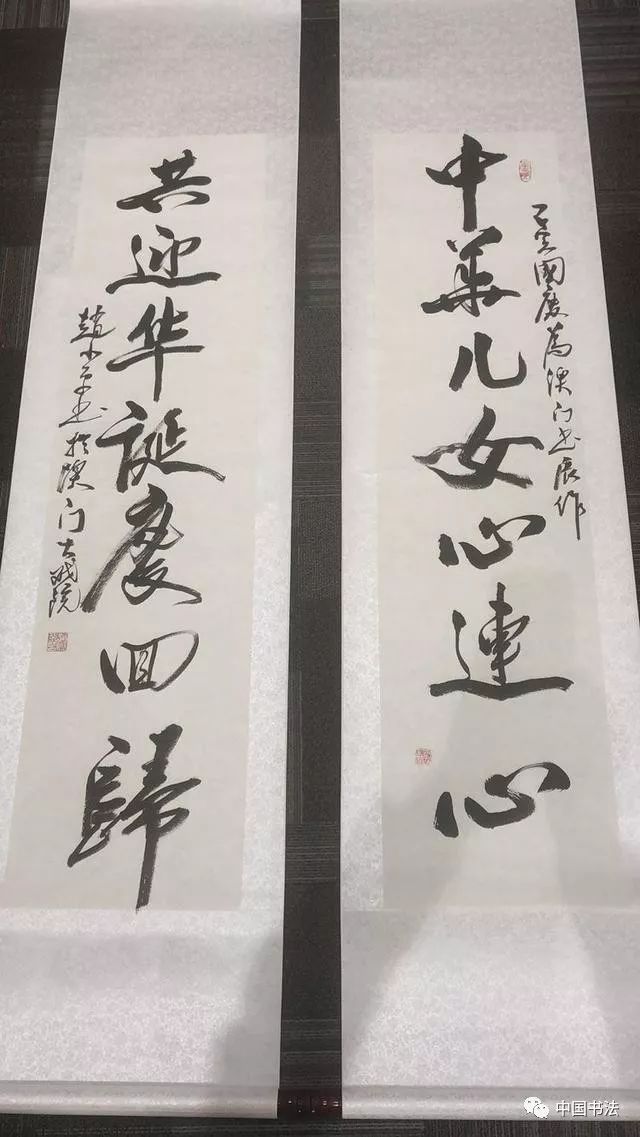 中華儿女心連心
己亥國慶為澳门书展作
共迎华誕慶回歸
趙小平书於澳门大戏院
中国书法